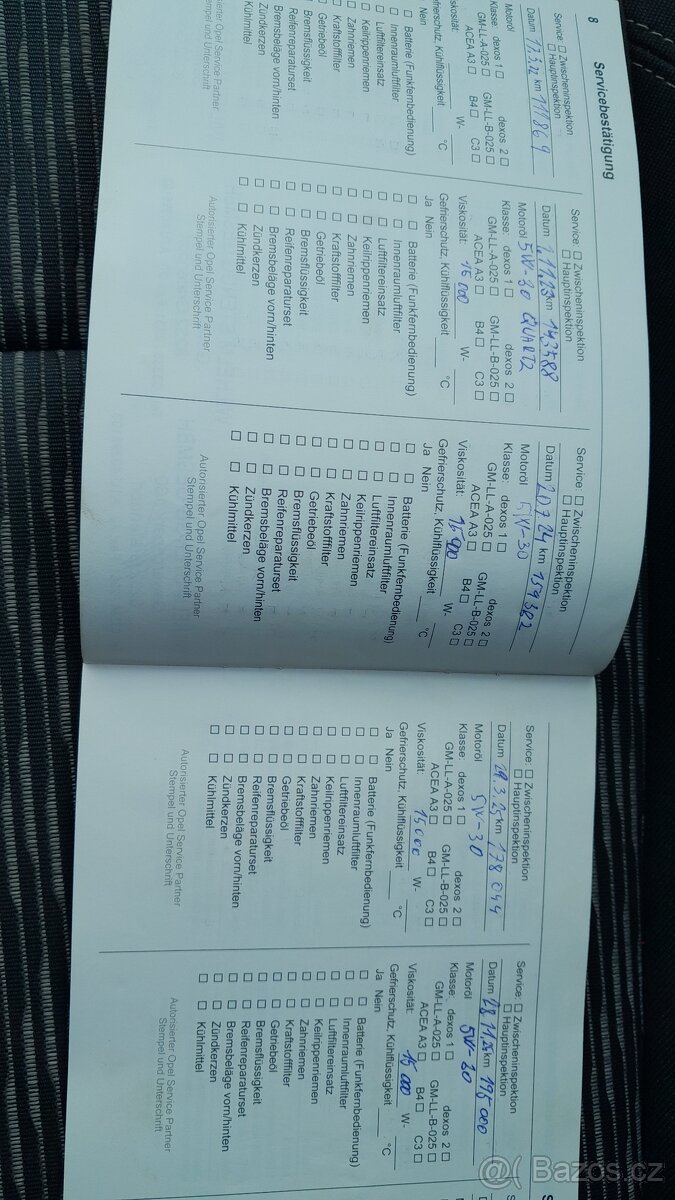 8 Servicebestätigung
Service: □ Zwischeninspektion
□ Hauptinspektion
Datum 17.3.22 km 111869
Motoröl
Klasse: dexos 1 □ dexos 2 □
GM-LL-A-025 □ GM-LL-B-025 □
ACEA A3 □ B4 □ C3 □
W-
Gefrierschutz, Kühlflüssigkeit ____ °C
Nein
□ Batterie (Funkfernbedienung)
□ Innenraumluftfilter
□ Luftfiltereinsatz
□ Keilrippenriemen
□ Zahnriemen
□ Kraftstofffilter
□ Getriebeöl
□ Bremsflüssigkeit
□ Reifenreparaturset
□ Bremsbeläge vorn/hinten
□ Zündkerzen
□ Kühlmittel
Autorisierter Opel Service Partner
Stempel und Unterschrift
Service: □ Zwischeninspektion
□ Hauptinspektion
Datum 1.11.23 km 143588
Motoröl 5W-30 QUARTZ
Klasse: dexos 1 □ dexos 2 □
GM-LL-A-025 □ GM-LL-B-025 □
ACEA A3 □ B4 □ C3 □
Viskosität: 15 000 W-
Gefrierschutz, Kühlflüssigkeit ____ °C
Ja Nein
□ □ Batterie (Funkfernbedienung)
□ □ Innenraumluftfilter
□ □ Luftfiltereinsatz
□ □ Keilrippenriemen
□ □ Zahnriemen
□ □ Kraftstofffilter
□ □ Getriebeöl
□ □ Bremsflüssigkeit
□ □ Reifenreparaturset
□ □ Bremsbeläge vorn/hinten
□ □ Zündkerzen
□ □ Kühlmittel
Autorisierter Opel Service Partner
Stempel und Unterschrift
Service: □ Zwischeninspektion
□ Hauptinspektion
Datum 20.7.24 km 159382
Motoröl 5W-30
Klasse: dexos 1 □ dexos 2 □
GM-LL-A-025 □ GM-LL-B-025 □
ACEA A3 □ B4 □ C3 □
Viskosität: 15 000 W-
Gefrierschutz, Kühlflüssigkeit ____ °C
Ja Nein
□ □ Batterie (Funkfernbedienung)
□ □ Innenraumluftfilter
□ □ Luftfiltereinsatz
□ □ Keilrippenriemen
□ □ Zahnriemen
□ □ Kraftstofffilter
□ □ Getriebeöl
□ □ Bremsflüssigkeit
□ □ Reifenreparaturset
□ □ Bremsbeläge vorn/hinten
□ □ Zündkerzen
□ □ Kühlmittel
Autorisierter Opel Service Partner
Stempel und Unterschrift
Service: □ Zwischeninspektion
□ Hauptinspektion
Datum 19.3.25 km 178 044
Motoröl 5W-30
Klasse: dexos 1 □ dexos 2 □
GM-LL-A-025 □ GM-LL-B-025 □
ACEA A3 □ B4 □ C3 □
Viskosität: 15 000 W-
Gefrierschutz, Kühlflüssigkeit ____ °C
Ja Nein
□ □ Batterie (Funkfernbedienung)
□ □ Innenraumluftfilter
□ □ Luftfiltereinsatz
□ □ Keilrippenriemen
□ □ Zahnriemen
□ □ Kraftstofffilter
□ □ Getriebeöl
□ □ Bremsflüssigkeit
□ □ Reifenreparaturset
□ □ Bremsbeläge vorn/hinten
□ □ Zündkerzen
□ □ Kühlmittel
Autorisierter Opel Service Partner
Stempel und Unterschrift
Service: □ Zwischeninspektion
□ Hauptinspektion
Datum 28.11.25 km 195000
Motoröl 5W-30
Klasse: dexos 1 □ dexos 2 □
GM-LL-A-025 □ GM-LL-B-025 □
ACEA A3 □ B4 □ C3 □
Viskosität: 15 000 W-
Gefrierschutz, Kühlflüssigkeit ____ °C
Ja Nein
□ □ Batterie (Funkfernbedienung)
□ □ Innenraumluftfilter
□ □ Luftfiltereinsatz
□ □ Keilrippenriemen
□ □ Zahnriemen
□ □ Kraftstofffilter
□ □ Getriebeöl
□ □ Bremsflüssigkeit
□ □ Reifenreparaturset
□ □ Bremsbeläge vorn/hinten
□ □ Zündkerzen
□ □ Kühlmittel
Autorisierter Opel Service Partner
Stempel und Unterschrift
Bazos.cz